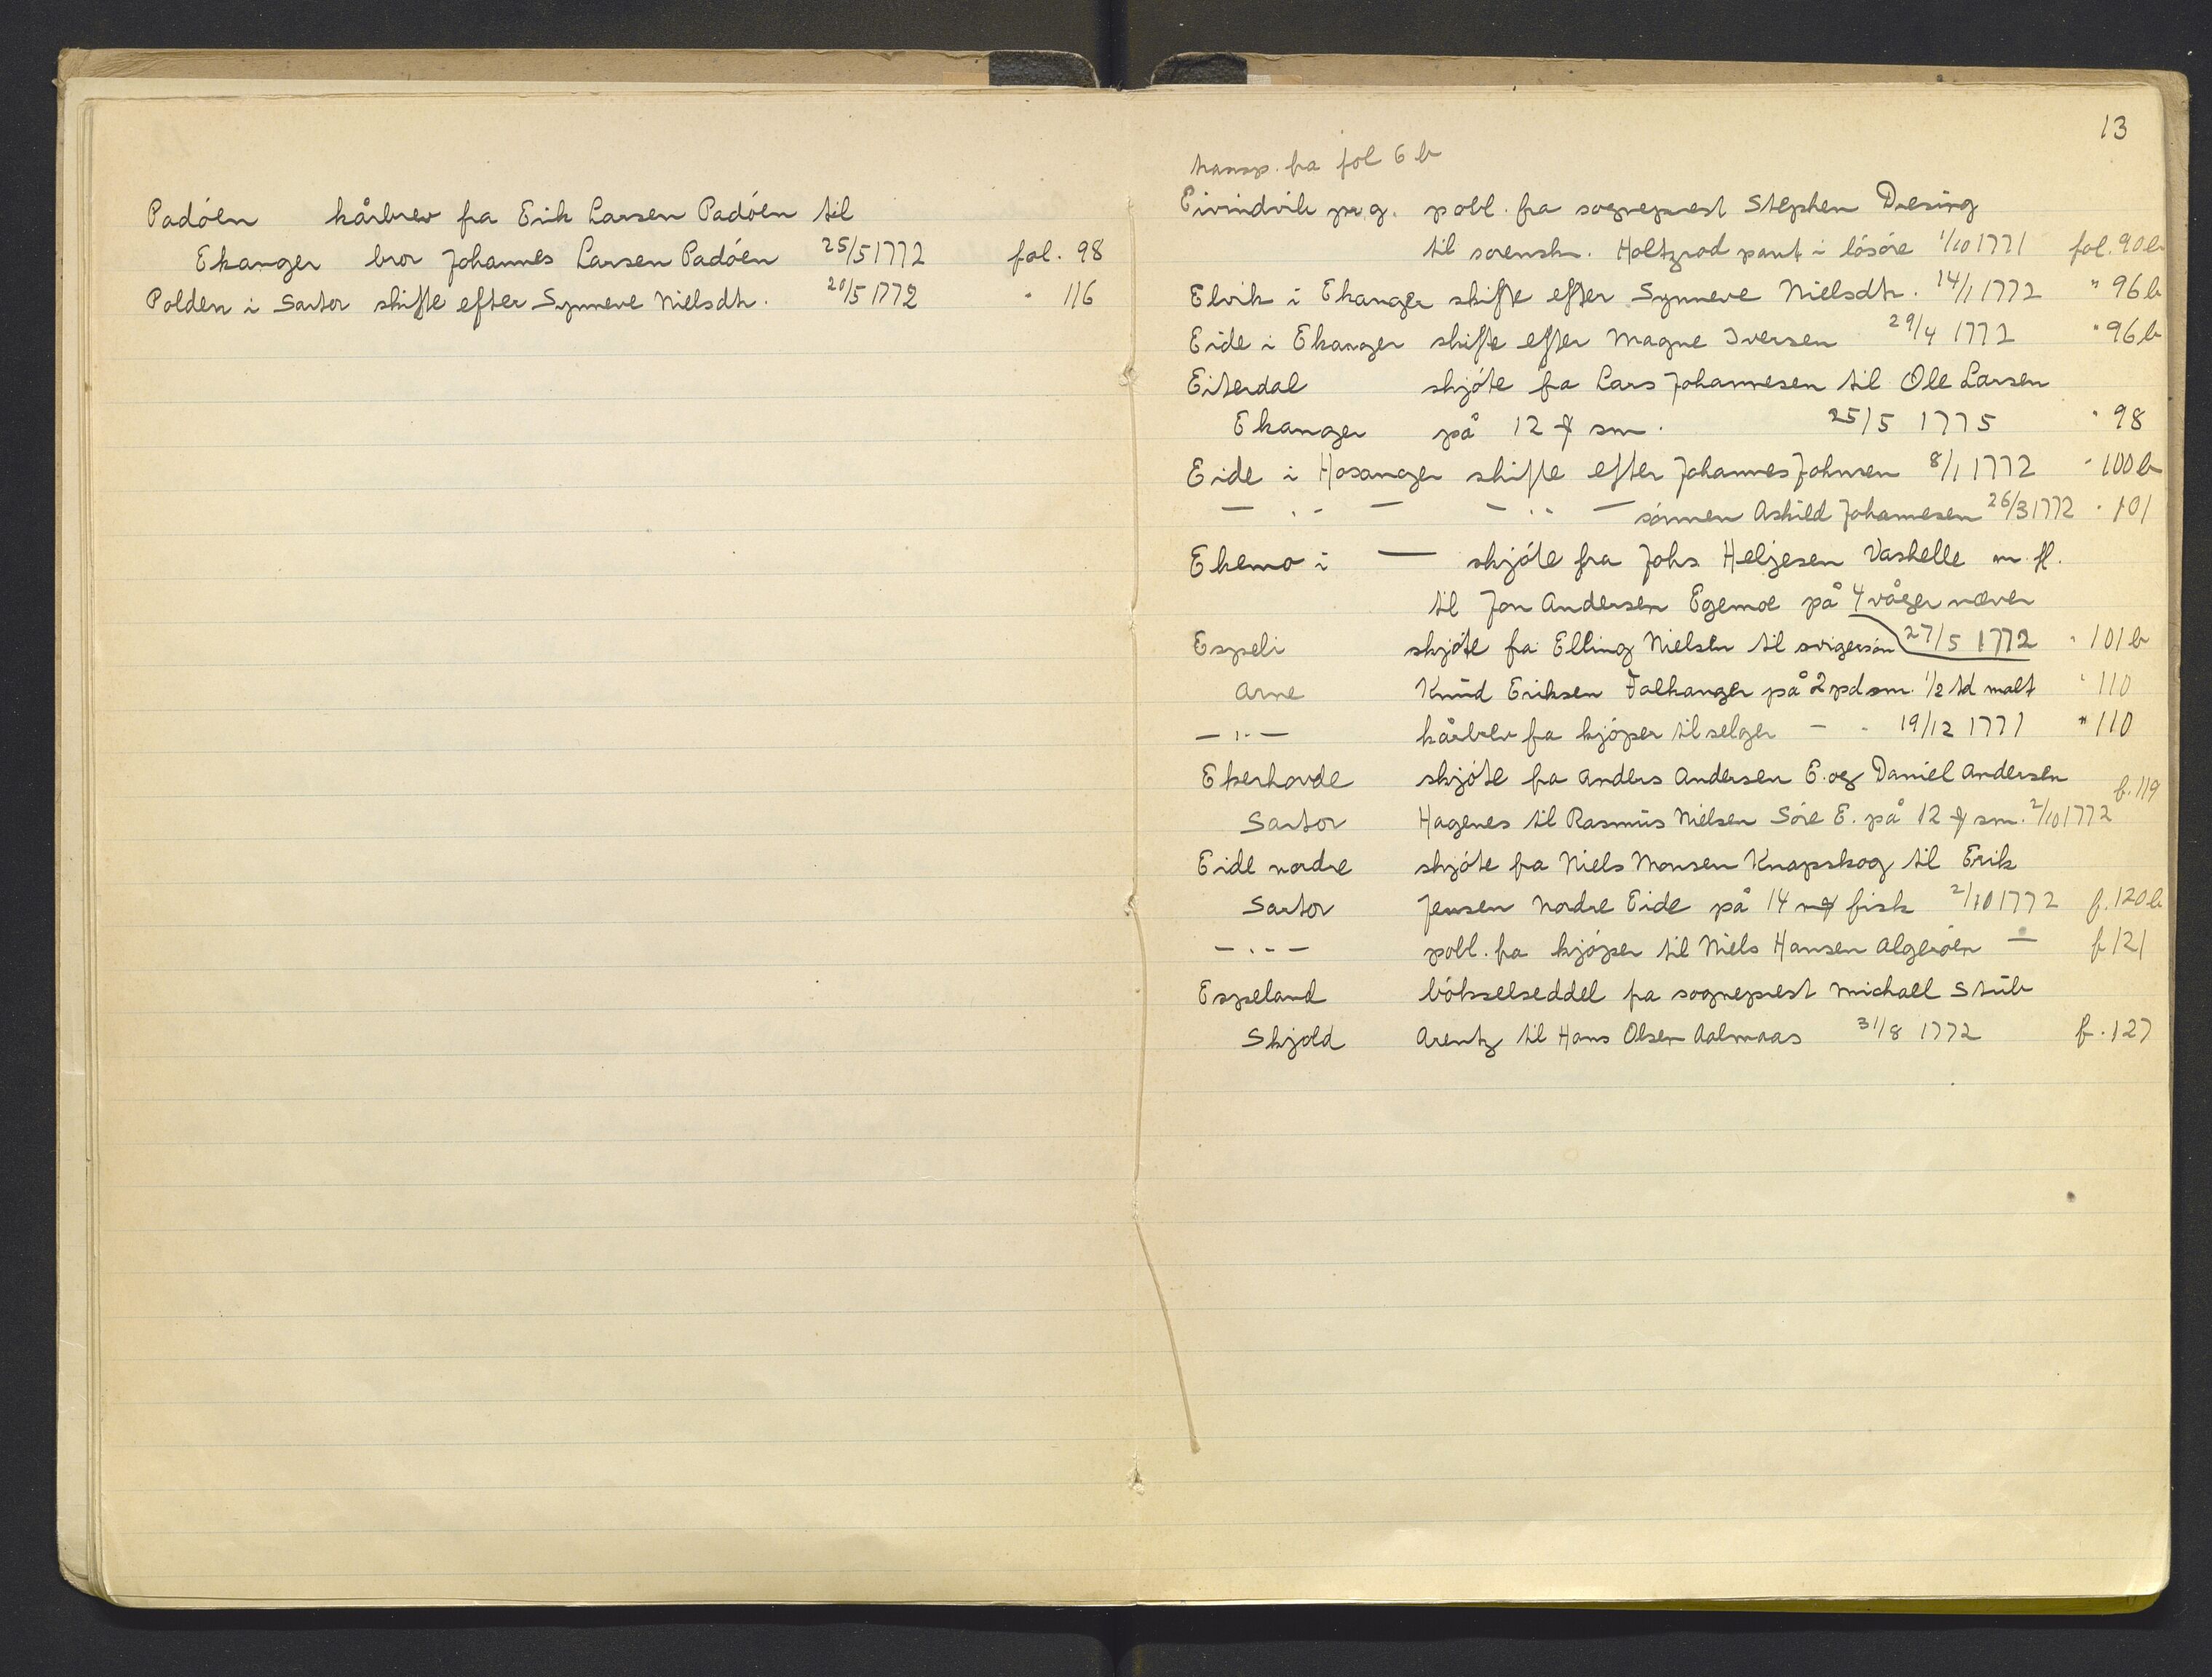 Padóen kårbrev fra Erik Larsen Padóen til
Ekanger bror Johannes Larsen Padóen 25/5 1772 fol. 98
Polden i Sartor skifte efter Synneve Nielsdtr. 20/5 1772 " 116
13
transp. fra fol 6 b
Eivindvik pr.g. pobl. fra sogneprest Stephen Dresing
til sorenskr. Holtzrod pant i lösóre 1/10 1771 fol. 90 b
Elvik i Ekanger skifte efter Synneve Nielsdtr. 14/1 1772 " 96 b
Eide i Ekanger skifte efter Magne Iversen 29/4 1772 " 96 b
Eiterdal skjóte fra Lars Johannesen til Ole Larsen
Ekanger på 12 ℔ sm. 25/5 1775 " 98
Eide i Hosanger skifte efter Johannes Johnsen 8/1 1772 " 100 b
— " — — — " — sónnen Askild Johannesen 26/3 1772 " 101
Ekemo i — skjóte fra Johs Heljesen Vaskelle m. fl.
til Jon Andersen Egemoe på 4 våger never
Espeli skjóte fra Elling Nielsen til svigersón 27/5 1772 " 101 b
Arne Knud Eriksen Falkanger på 2 pd sm. 1/2 td malt " 110
— " — kårbrev fra kjóper til selger — " 19/12 1771 " 110
Ekerhovde skjóte fra Anders Andersen E. og Daniel Andersen f. 119
Sartor Hagenes til Rasmus Nielsen Sóre E. på 12 ℔ sm. 2/10 1772
Eide nordre skjóte fra Niels Monsen Knapskog til Erik
Sartor Jensen Nordre Eide på 14 m℔ fisk 2/10 1772 f. 120 b
— " — pobl. fra kjóper til Niels Hansen Algeróen — f 121
Espeland bókselseddel fra sogneprest Michael Stub
Skjold Arentz til Hans Olsen Aalmaas 31/8 1772 f. 127